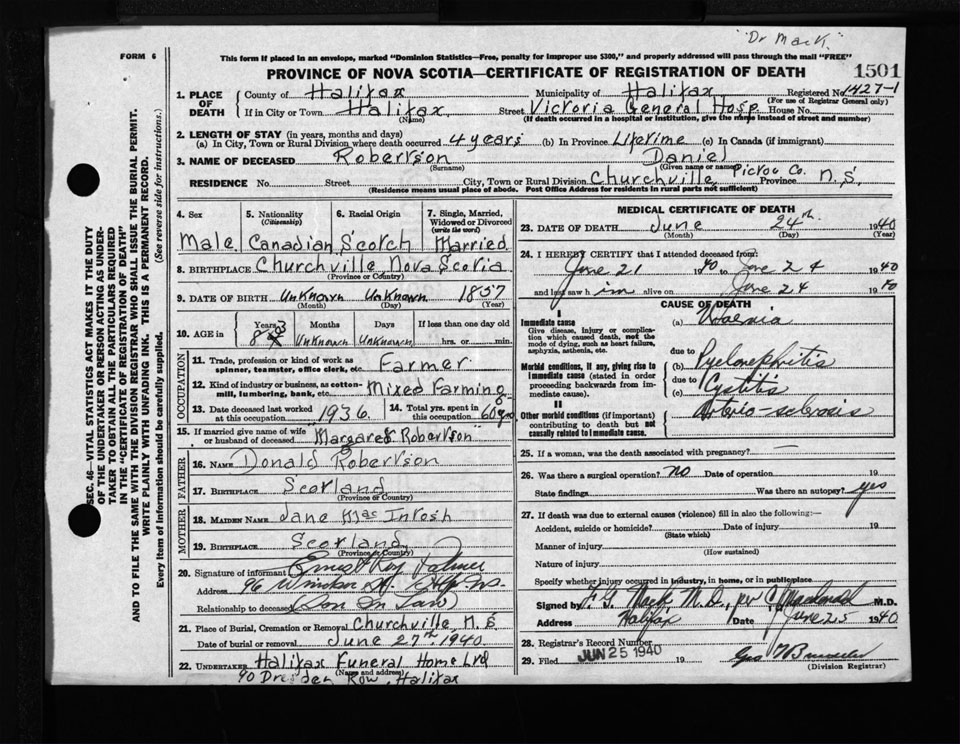 "Dr Mack"
FORM 6
This form if placed in an envelope, marked "Dominion Statistics—Free, penalty for improper use $300," and properly addressed will pass through the mail "FREE"
PROVINCE OF NOVA SCOTIA—CERTIFICATE OF REGISTRATION OF DEATH
1501
1. PLACE OF DEATH County of Halifax Municipality of Halifax Registered No 1427-1
(For use of Registrar General only)
If in City or Town Halifax Street Victoria General Hosp House No.
(Name) (If death occurred in a hospital or institution, give the name instead of street and number)
2. LENGTH OF STAY (in years, months and days)
(a) In City, Town or Rural Division where death occurred 4 years (b) In Province Lifetime (c) In Canada (if immigrant)
3. NAME OF DECEASED Robertson Daniel
(Surname) (Given name or names)
RESIDENCE No. Street City, Town or Rural Division Churchville Pictou Co. Province N.S.
(Residence means usual place of abode. Post Office Address for residents in rural parts not sufficient)
4. Sex Male
5. Nationality (Citizenship) Canadian
6. Racial Origin Scotch
7. Single, Married, Widowed or Divorced (write the word) Married
8. BIRTHPLACE Churchville Nova Scotia
(Province or Country)
9. DATE OF BIRTH Unknown Unknown 1857
(Month) (Day) (Year)
10. AGE in Years 83 Months Unknown Days Unknown If less than one day old hrs. or min.
OCCUPATION
11. Trade, profession or kind of work as spinner, teamster, office clerk, etc. Farmer
12. Kind of industry or business, as cotton-mill, lumbering, bank, etc. Mixed Farming
13. Date deceased last worked at this occupation 1936. 14. Total yrs. spent in this occupation 60 yrs
15. If married give name of wife or husband of deceased Margaret Robertson
FATHER
16. NAME Donald Robertson
17. BIRTHPLACE Scotland
(Province or Country)
MOTHER
18. MAIDEN NAME Jane MacIntosh
19. BIRTHPLACE Scotland
(Province or Country)
20. Signature of informant Ernest Roy
Address 96 Windsor St. Hfx N.S.
Relationship to deceased (Son In Law)
21. Place of Burial, Cremation or Removal Churchville, N.S.
Date of burial or removal June 27th 1940
22. UNDERTAKER Halifax Funeral Home Ltd
(Name and address)
90 Dresden Row, Halifax
MEDICAL CERTIFICATE OF DEATH
23. DATE OF DEATH June 24th 1940
(Month) (Day) (Year)
24. I HEREBY CERTIFY that I attended deceased from:
June 21 1940 to June 24 1940
and last saw him alive on June 24 1940
CAUSE OF DEATH
I
Immediate cause (a) Uraemia
Give disease, injury or complication which caused death, not the mode of dying, such as heart failure, asphyxia, asthenia, etc.
due to
Morbid conditions, if any, giving rise to immediate cause (stated in order proceeding backwards from immediate cause). (b) Pyelonephritis
due to
(c) Cystitis
II
Other morbid conditions (if important) contributing to death but not causally related to immediate cause. Arterio-sclerosis
25. If a woman, was the death associated with pregnancy? —
26. Was there a surgical operation? no Date of operation 19
State findings Was there an autopsy? yes
27. If death was due to external causes (violence) fill in also the following:—
Accident, suicide or homicide? Date of injury 19
(State which)
Manner of injury
(How sustained)
Nature of injury
Specify whether injury occurred in industry, in home, or in public place
Signed by F.G. Mack M.D. per Macdonald M.D.
Address Halifax Date June 25 1940
28. Registrar's Record Number
29. Filed JUN 25 1940 19
(Division Registrar)
SEC. 46—VITAL STATISTICS ACT MAKES IT THE DUTY
OF THE UNDERTAKER OR PERSON ACTING AS UNDER-
TAKER TO OBTAIN ALL THE PARTICULARS REQUIRED
IN THE "CERTIFICATE OF REGISTRATION OF DEATH"
AND TO FILE THE SAME WITH THE DIVISION REGISTRAR WHO SHALL ISSUE THE BURIAL PERMIT.
WRITE PLAINLY WITH UNFADING INK. THIS IS A PERMANENT RECORD.
Every item of information should be carefully supplied. (See reverse side for instructions.)